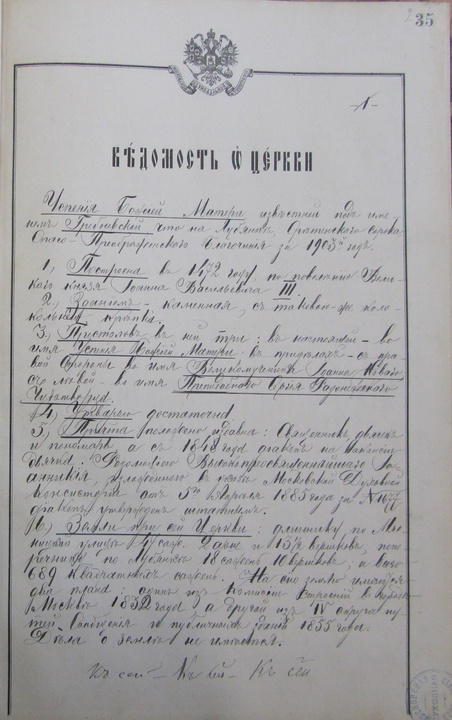 35
ВѢДОМОСТЬ Ѡ ЦЕРКВИ
Успенія Божіей Матери извѣстной подъ име
немъ Гребневской что на Лубянкѣ, Срѣтенскаго сорока
Спасо-Преображенскаго благочинія за 1903й годъ.
1, Построена въ 1472 году, по повелѣнію Вели-
каго князя Іоанна Васильевича III.
2, Зданіемъ - каменная, съ таковою-же коло-
кольнею крѣпка.
3, Престоловъ въ ней три: въ настоящей - во
имя Успенія Божіей Матери въ придѣлахъ - съ пра
вой стороны во имя Великомученика Іоанна Новаго
съ лѣвой - во имя Преподобнаго Сергія Радонежскаго
Чудотворца.
4, Утварью достаточна
5, Причта положено издавна: Священникъ, діаконъ
и пономарь а съ 1843 года діаконъ на вакансіи
дьячка. Резолюціею Высокопреосвященнѣйшаго Іо-
анникія, Московской Духовной
Консисторіи отъ 5го Февраля 1885 года за № 677
діаконъ утвержденъ штатнымъ.
6, Земли при сей Церкви: длиннику, по Мя-
ницкой улицѣ 2 арш. и 13½ вершковъ, попе
речнику по Лубянкѣ 18 саженъ вершковъ; а всего
689 квадратныхъ саженъ. На сію землю имѣются
два плана: одинъ изъ Комиссіи Строеній въ
Москвѣ 1832 года, а другой изъ IV округа пу
тей Сообщенія и публичныхъ зданій 1855 года.
Дѣла о землѣ не имѣется.
Къ сей